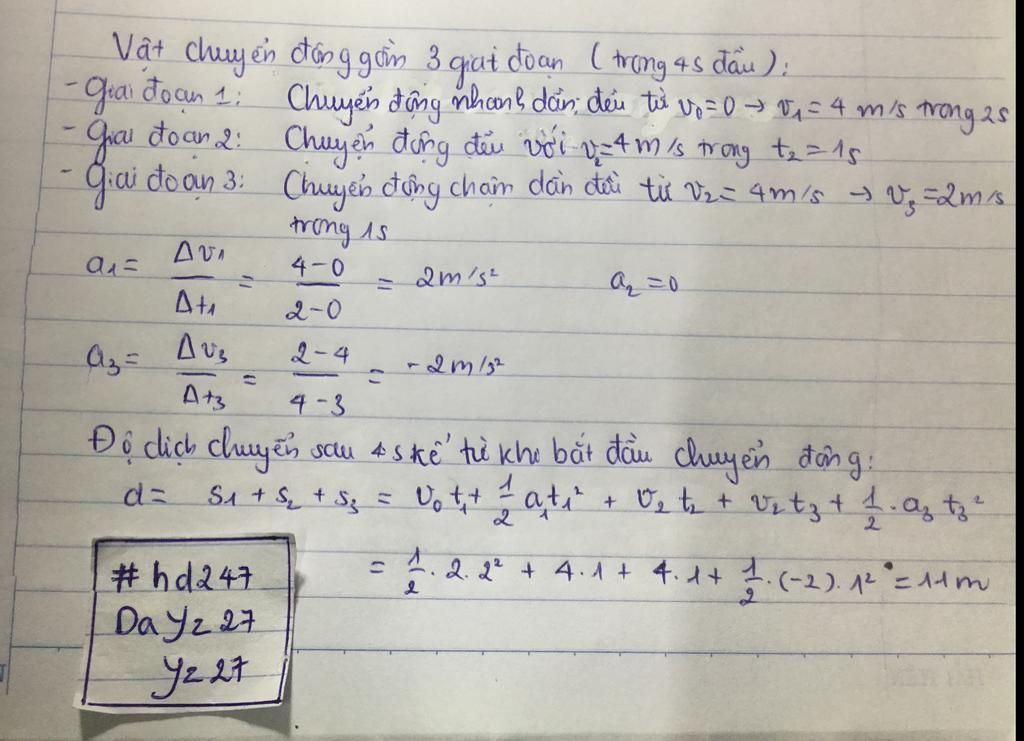 Vật chuyển động gồm 3 giai đoạn (trong 4s đầu):
- Giai đoạn 1: Chuyển động nhanh dần đều từ v₀=0 → v₁ = 4 m/s trong 2s
- Giai đoạn 2: Chuyển động đều với v₂=4m/s trong t₂=1s
- Giai đoạn 3: Chuyển động chậm dần đều từ v₂=4m/s → v₃=2m/s
trong 1s
a₁ = Δv₁/Δt₁ = (4-0)/(2-0) = 2m/s² a₂=0
a₃ = Δv₃/Δt₃ = (2-4)/(4-3) = -2m/s²
Độ dịch chuyển sau 4s kể từ khi bắt đầu chuyển động:
d = s₁ + s₂ + s₃ = v₀t₁ + 1/2 a₁t₁² + v₂t₂ + v₂t₃ + 1/2 . a₃t₃²
= 1/2 . 2 . 2² + 4.1 + 4.1 + 1/2 . (-2) . 1² = 11m
#hd247
DaYz27
Yz27